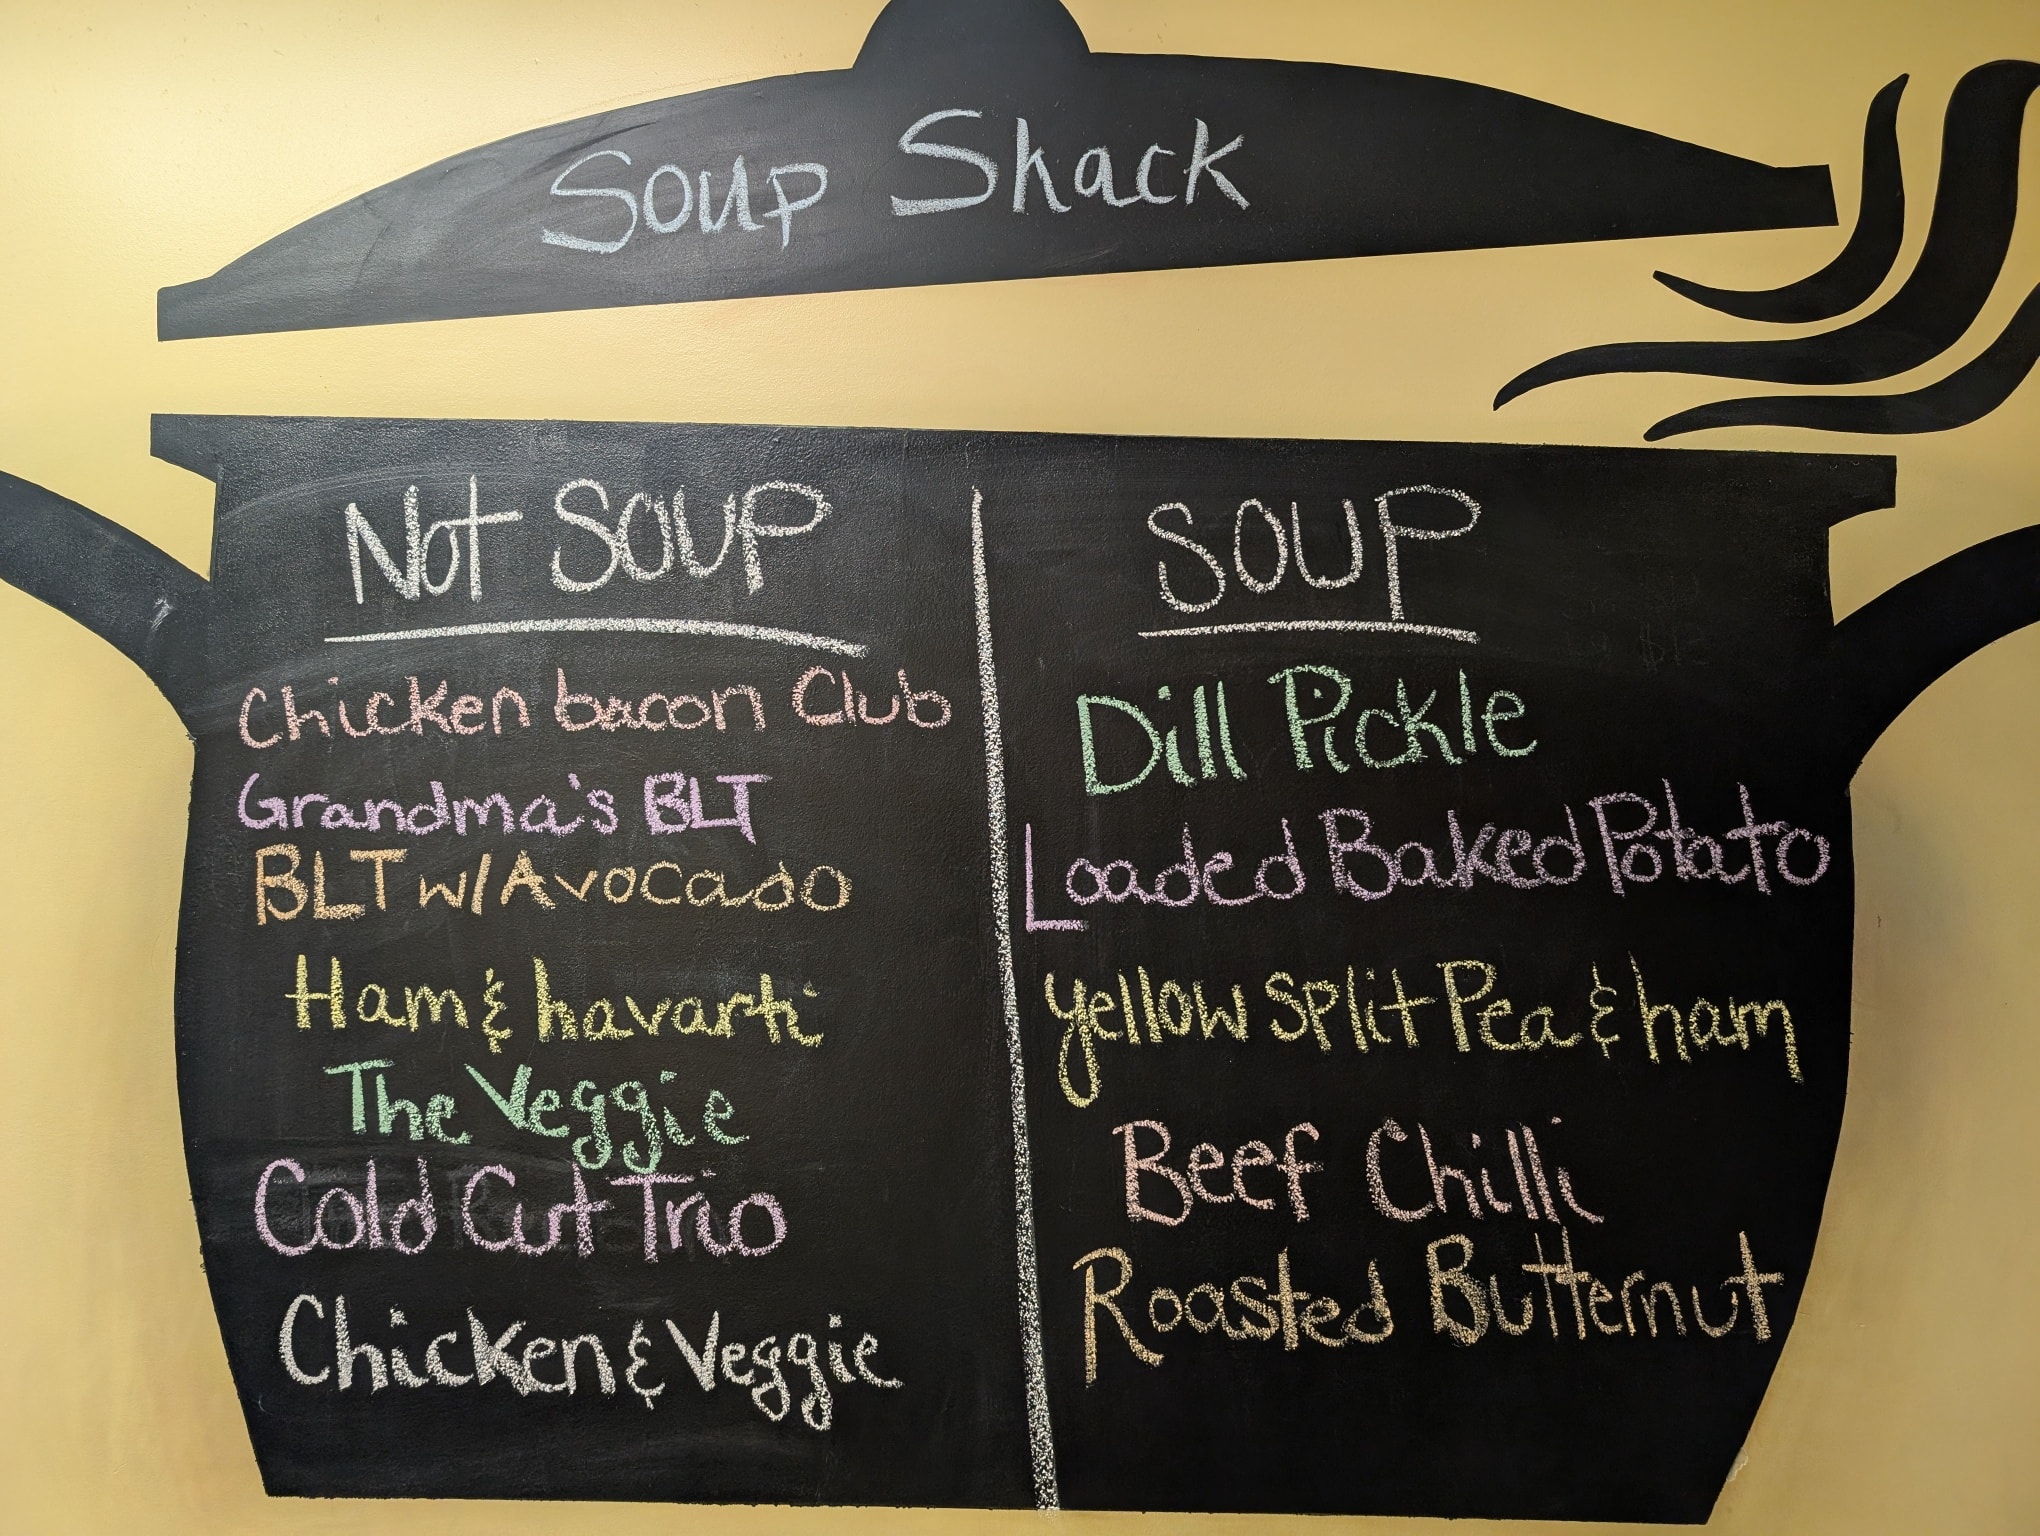 Soup Shack
Not SOUP
Chicken bacon Club
Grandma's BLT
BLT w/Avocado
Ham & havarti
The Veggie
Cold Cut Trio
Chicken & Veggie
SOUP
Dill Pickle
Loaded Baked Potato
yellow split Pea & ham
Beef Chilli
Roasted Butternut